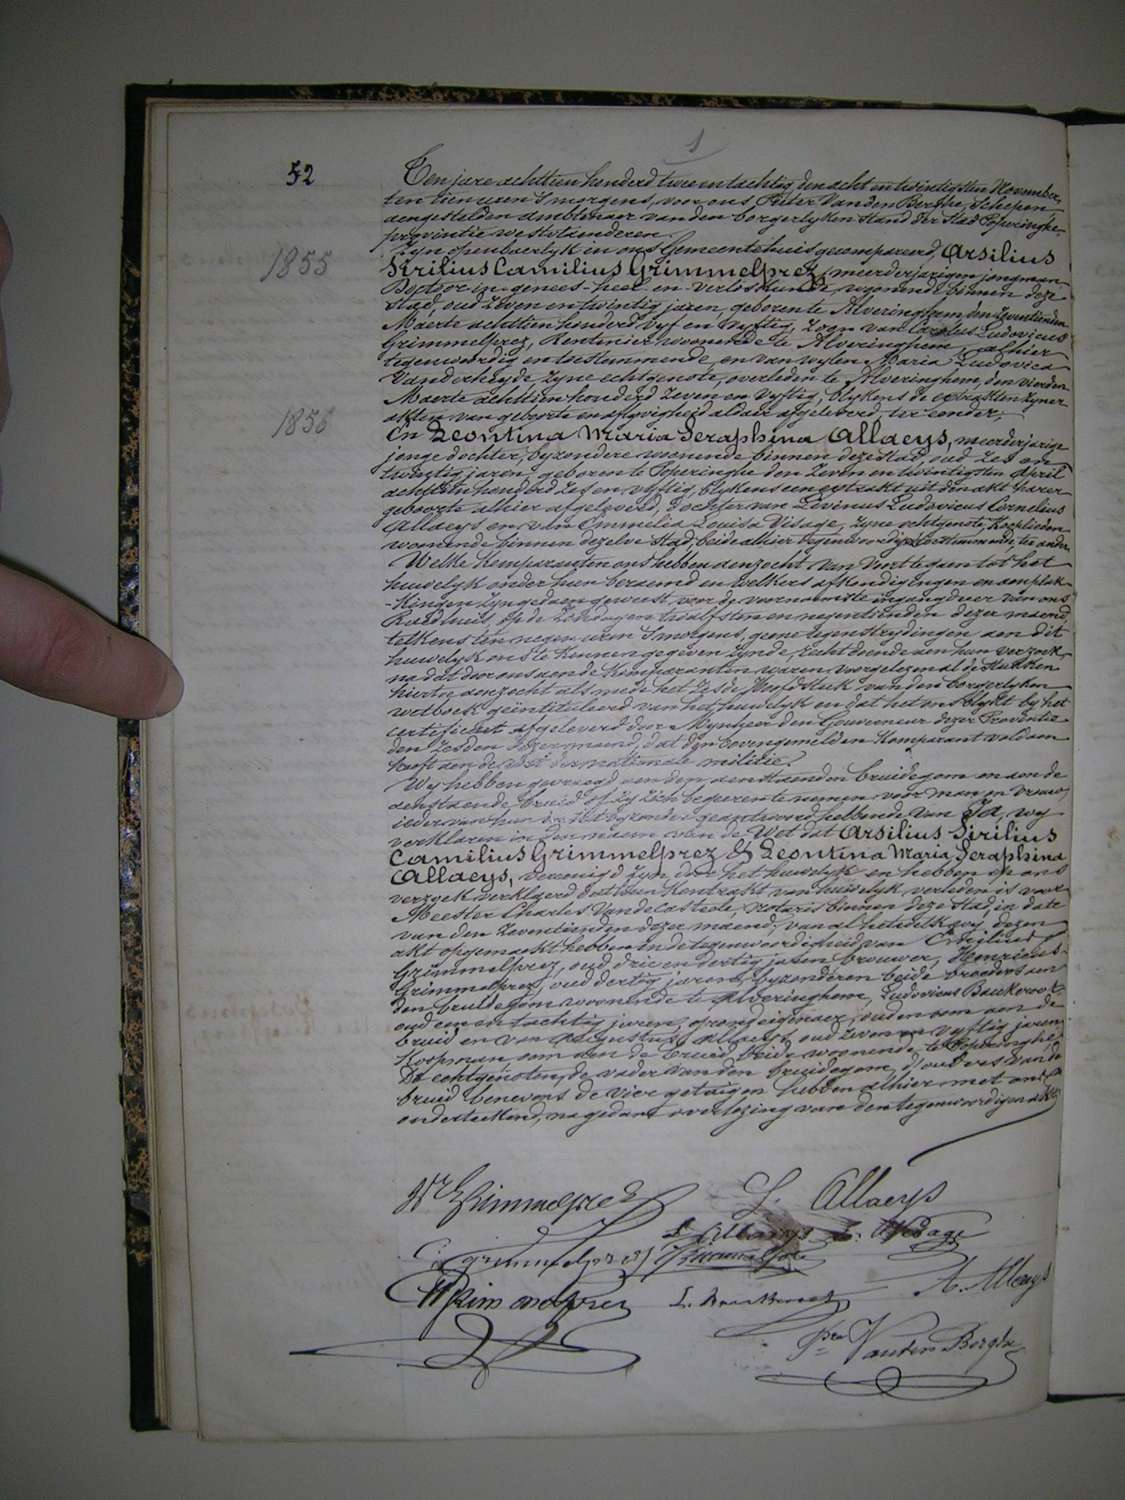 1
52
Ten jare achttien honderd twee en tachtig, den acht en twintigsten November,
ten tien uren 's morgens, voor ons Pieter Vanden Berghe, Schepen,
aengestelden ambtenaer van den borgerlyken stand der Stad Poperinghe,
provintie westvlaenderen.
Zyn openbaerlyk in ons Gemeentehuis gecompareerd, Arsilius
1855
Sirilius Camilius Grimmelprez, meerderjarigen jongman
Doctoor in genees- heel- en verloskunde, woonende binnen deze
stad, oud zeven en twintig jaren, geboren te Alveringhem den zeventienden
Maerte achttien honderd vyf en vyftig, zoon van Carolus Ludovicus
Grimmelprez, Rentenier woonende te Alveringhem, alhier
tegenwoordig en toestemmende, en van wylen Maria Ludovica
Vanderheyde zyne echtgenote, overleden te Alveringhem, den vierden
Maerte achttien honderd zeven en vyftig, blykens de extrakten zyner
akten van geboorte en afgeleverd, ter eender;
1856
En Leontina Maria Seraphina Allaeys, meerderjarige
jonge dochter, byzondere woonende binnen deze stad, oud zes en
twintig jaren, geboren te Poperinghe den zeven en twintigsten April
achttien honderd zes en vyftig, blykens een extrakt uit den akt harer
geboorte alhier afgeleverd, dochter van Livinus Ludovicus Cornelius
Allaeys en van Emmelia Louisa Visage, zyne echtgenote, Kooplieden
woonende binnen dezelve stad, beide alhier tegenwoordig en toestemmende, ter andere.
Welke Komparanten ons hebben aenzocht van voort te gaen tot het
huwelyk onder hun beraemd en welkers afkondigingen en aenplak-
-kingen zyn gedaen geweest, voor de voornaemste ingangdeur van ons
Raedhuis, op de Zondagen twaalfsten en negentienden dezer maend,
telkens ten negen uren 's morgens, geene tegenstrydingen aen dit
huwelyk ons te kennen gegeven zynde, recht doende aen hun verzoek,
na dat door ons aende Komparanten waren voorgelezen al de stukken
hiertoe aenzocht als mede het zesde Hoofdstuk van den borgerlyken
wetboek geïntituleerd van het huwelyk en dat het ons blykt by het
certificaet afgeleverd door Mynheer den Gouverneur dezer Provintie
den zesden dezer maend, dat den bovengemelden Komparant voldaen
heeft aen de wet der nationale militie.
Wy hebben gevraegd aen den aenstaenden bruidegom en aen de
aenstaende bruid of zy zich begeeren te nemen voor man en vrouw,
ieder van hun in het byzonder geantwoord hebbende van Ja, wy
verklaren in den naem van de Wet dat Arsilius Sirilius
Camilius Grimmelprez & Leontina Maria Seraphina
Allaeys, vereenigd zyn door het huwelyk en hebben op ons
verzoek verklaerd dat een Kontrakt van huwelyk verleden is voor
Meester Charles Vandecasteele, notaris binnen deze stad, in date
van den zeventienden dezer maend, van al hetwelk wy dezen
akt opgemaekt hebben in de tegenwoordigheid van
Grimmelprez, oud drie en dertig jaren brouwer, Henricus
Grimmelprez, oud dertig jaren, byzonderen beide broeders aen
den bruidegom woonende te Alveringhem, Ludovicus
oud een en tachtig jaren, grondeigenaer, ouden oom aen de
bruid en van Augustus Allaeys, oud zeven en vyftig jaren
Koopman, oom aen de bruid, beide woonende te Poperinghe,
De echtgenoten, de vader van den bruidegom, d'ouders van de
bruid benevens de vier getuigen hebben alhier met ons
onderteekend, na gedane overlezing van den tegenwoordigen akt.
Grimmelprez
L. Allaeys
L. Allaeys E. Visage
C. Grimmelprez
Grimmelprez
A. Allaeys
Vanden Berghe